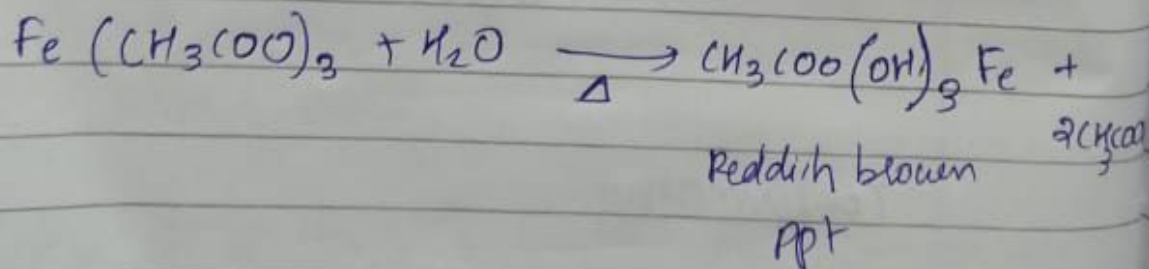 Fe (CH₃COO)₃ + H₂O →Δ CH₃COO(OH)₃ Fe +
2CH₃COO
Reddish brown
ppt